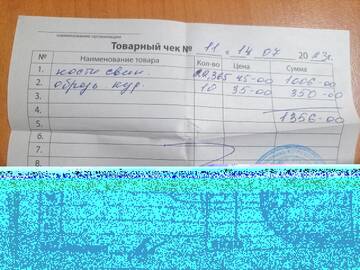 наименование организации
Товарный чек № 11 " 14 07 2023г.
№ Наименование товара Кол-во Цена Сумма
1. кости свин. 22,365 45-00 1006-00
2. обрезь кур. 10 35-00 350-00
3.
4. 1356-00
5.
6.
7.
8.